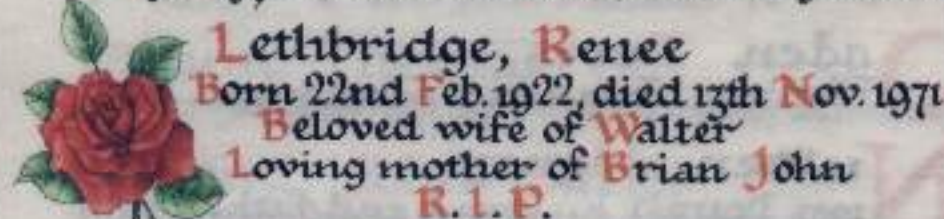 Lethbridge, Renee
Born 22nd Feb. 1922, died 13th Nov. 1971
Beloved wife of Walter
Loving mother of Brian John
R.I.P.